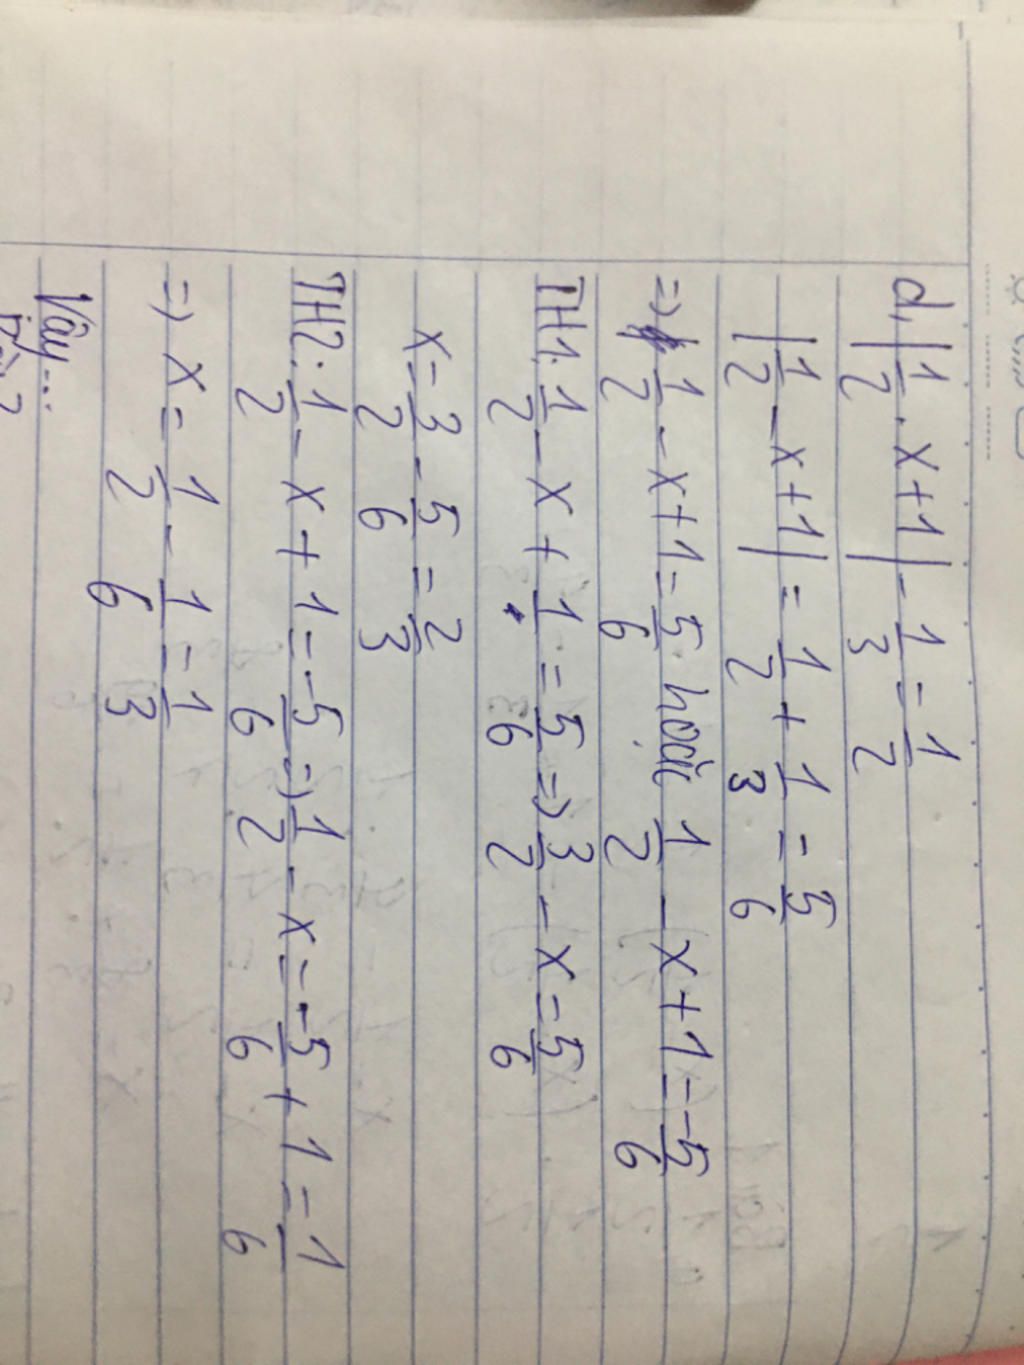 d, |1/2 . x+1| - 1/3 = 1/2
|1/2 - x+1| = 1/2 + 1/3 = 5/6
=> 1/2 - x+1 = 5/6 hoặc 1/2 - x+1 = -5/6
TH1: 1/2 - x + 1 = 5/6 => 3/2 - x = 5/6
x = 3/2 - 5/6 = 2/3
TH2: 1/2 - x + 1 = -5/6 => 1/2 - x = -5/6 + 1 = 1/6
=> x = 1/2 - 1/6 = 1/3
Vậy...